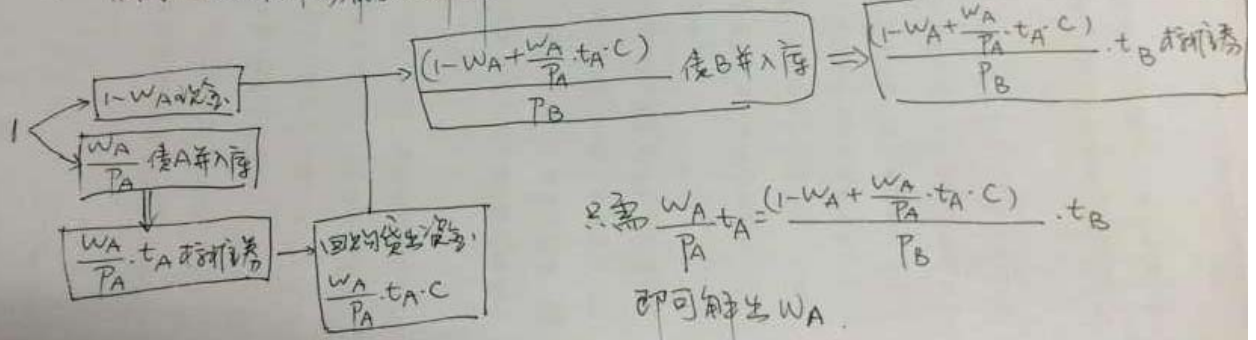 1
1-W_A现金
W_A/P_A 债A并入库
W_A/P_A · t_A 标准券
回购贷出资金
W_A/P_A · t_A · C
(1-W_A+W_A/P_A · t_A · C)/P_B 债B并入库
⇒ (1-W_A+W_A/P_A · t_A · C)/P_B · t_B 标准券
只需 W_A/P_A t_A = (1-W_A+W_A/P_A · t_A · C)/P_B · t_B
即可解出 W_A.